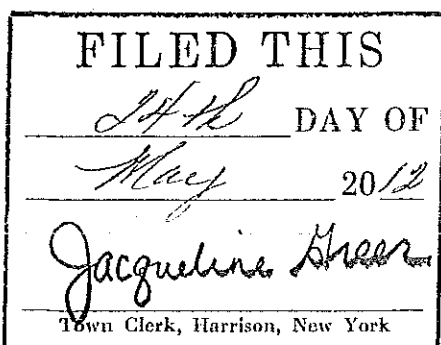 FILED THIS
24th DAY OF
May 2012
Jacqueline Greer
Town Clerk, Harrison, New York